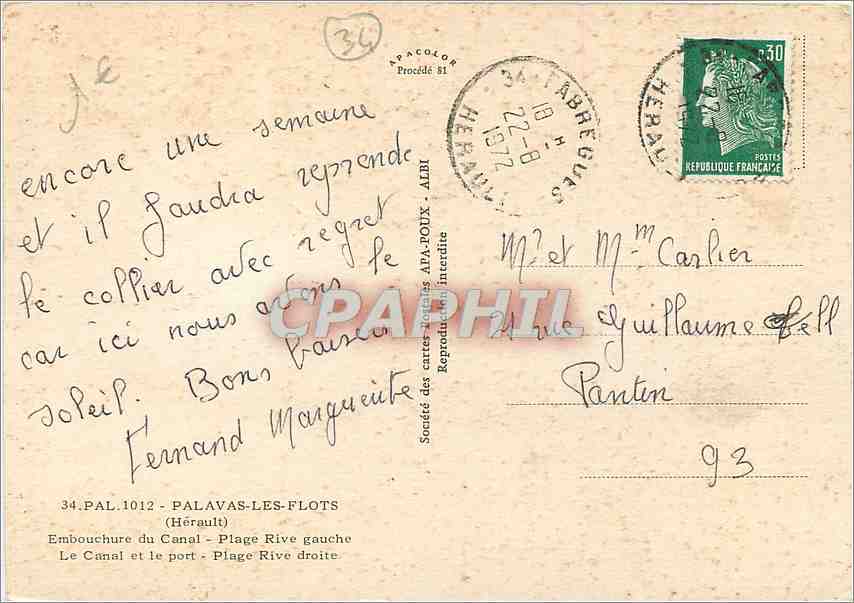 34
APACOLOR
Procédé 81
34-FABREGUES
18 H
22-8
1972
HERAULT
0,30
POSTES
REPUBLIQUE FRANÇAISE
HERAULT
encore une semaine
et il faudra reprendre
le collier avec regret
car ici nous avons le
soleil. Bons baisers
Fernand Marguerite
Société des cartes Postales APA-POUX - ALBI
Reproduction interdite
CPAPHIL
Mr et Mme Carlier
21 rue Guillaume Tell
Pantin
93
34.PAL.1012 - PALAVAS-LES-FLOTS
(Hérault)
Embouchure du Canal - Plage Rive gauche
Le Canal et le port - Plage Rive droite